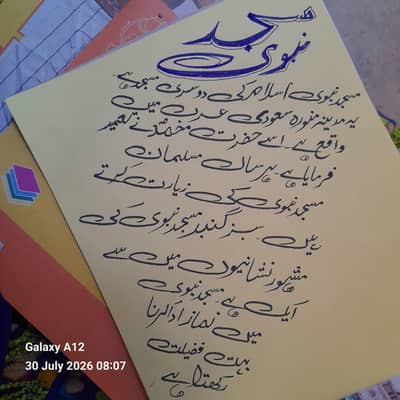 مسجد
نبوی
مسجد نبوی اسلام کی دوسری مسجد ہے۔
یہ مدینہ منورہ سعودی عرب میں
واقع ہے۔ اسے حضرت محمدؐ نے تعمیر
فرمایا ہے۔ ہر سال مسلمان
مسجد نبوی کی زیارت کرتے
ہیں۔ سبز گنبد مسجد نبوی کی
مشہور نشانیوں میں سے
ایک ہے۔ مسجد نبوی
میں نماز ادا کرنا
بہت فضیلت
رکھتا ہے
Galaxy A12
30 July 2026 08:07